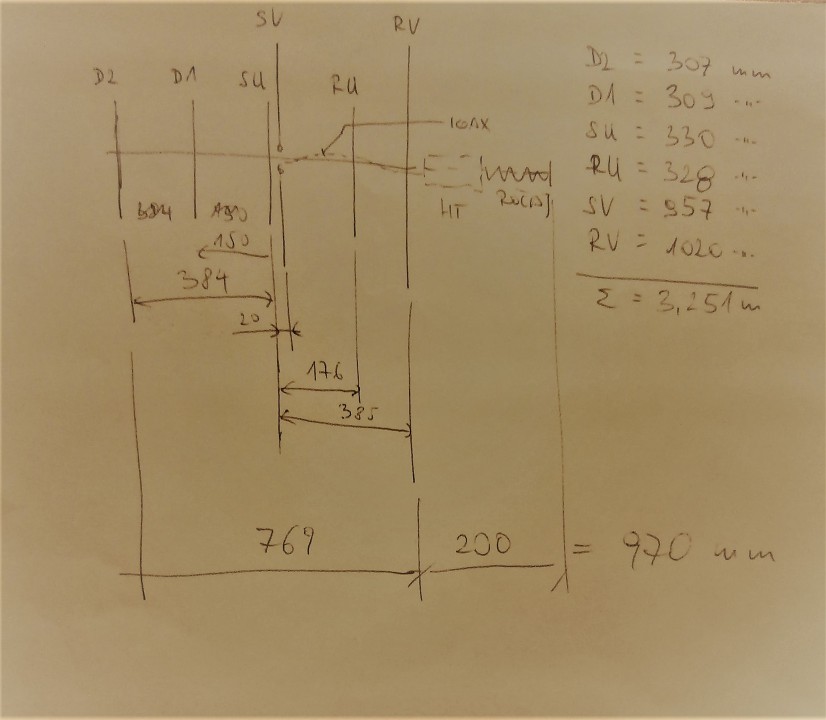 SV
RV
D2
D1
SU
RU
D2 = 307 mm
D1 = 309 -"-
SU = 330 -"-
RU = 328 -"-
SV = 957 -"-
RV = 1020 -"-
Σ = 3,251 m
HT
150
384
20
176
385
769
200
= 970 mm